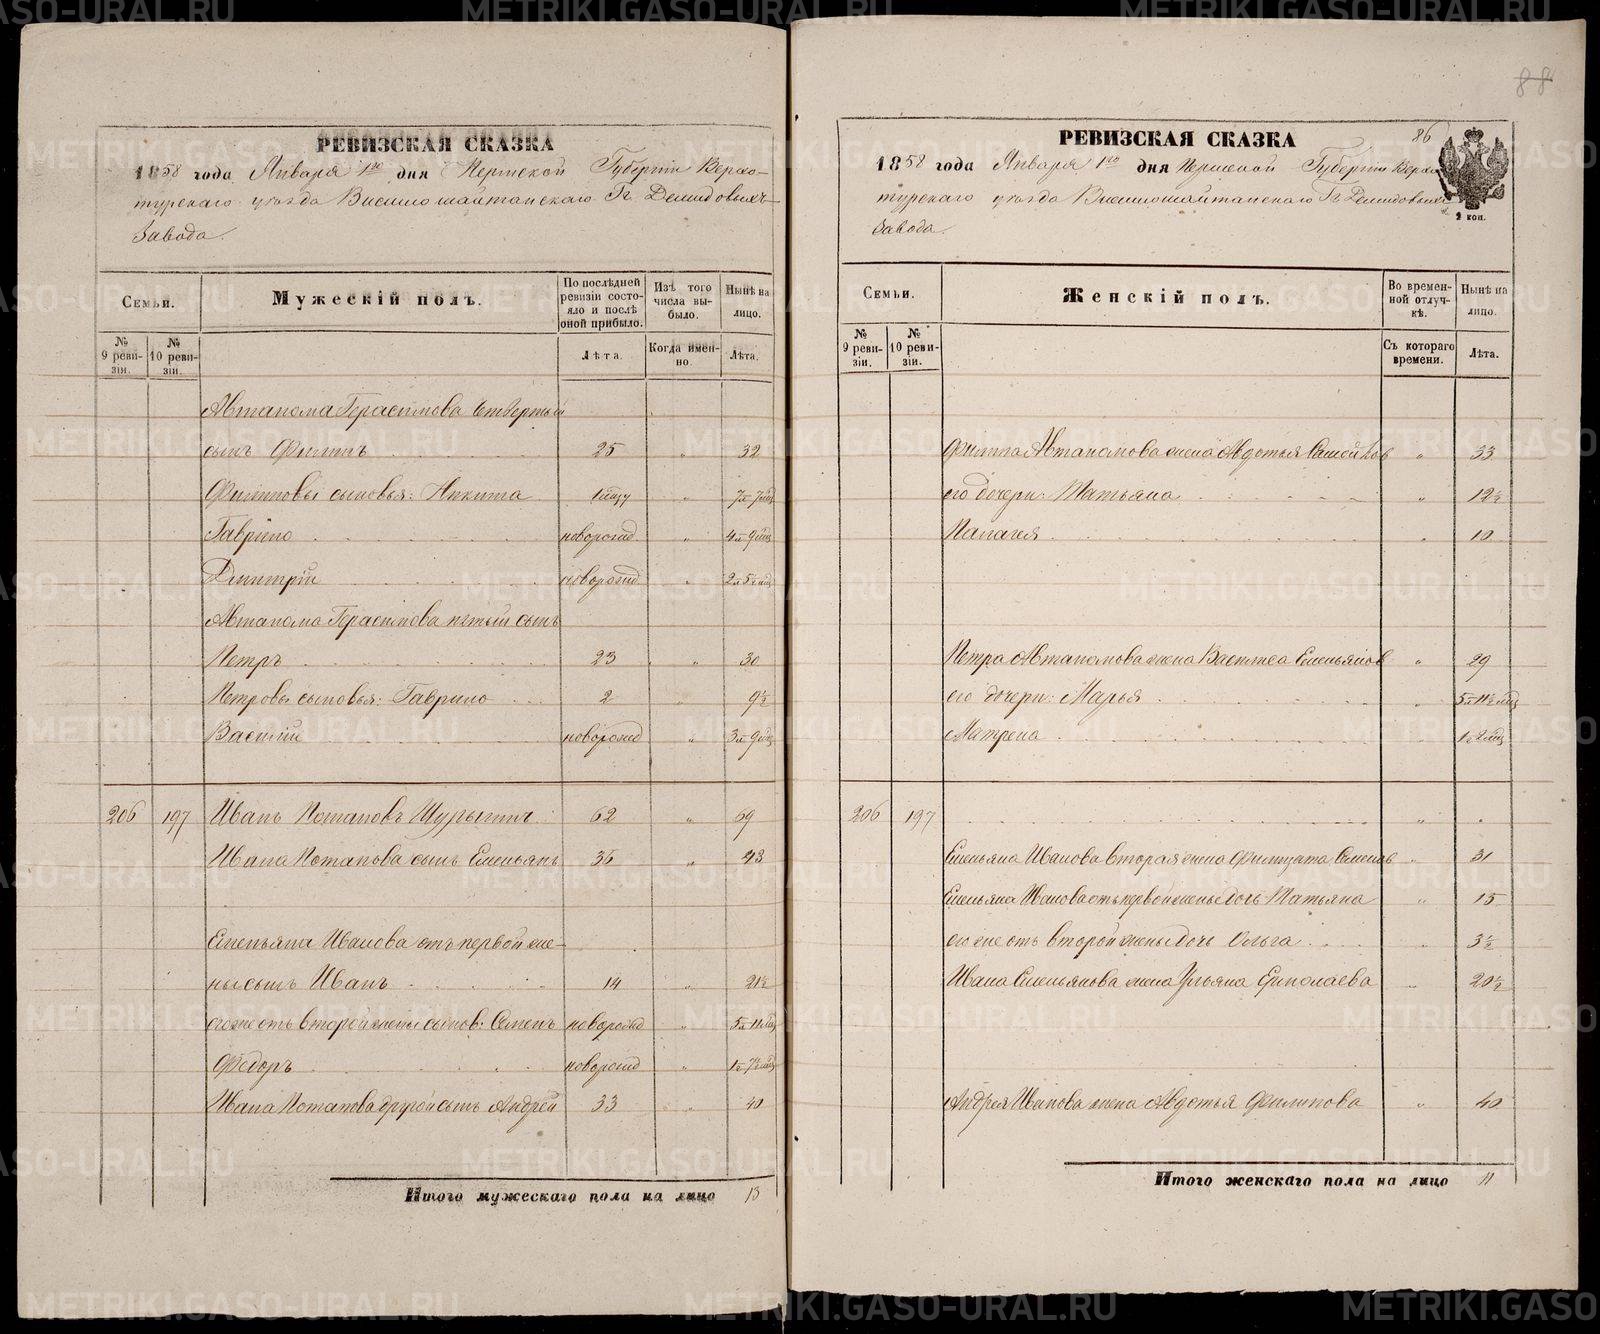 РЕВИЗСКАЯ СКАЗКА
1858 года Января 1го дня Пермской Губерніи Верхо-
турскаго уезда Висимошайтанскаго Гг. Демидовыхъ
Завода.
Семьи.
Мужескій полъ.
По послѣдней ревизіи состояло и послѣ оной прибыло.
Изъ того числа выбыло.
Нынѣ на лицо.
№ 9 ревизіи.
№ 10 ревизіи.
Лѣта.
Когда именно.
Лѣта.
Автанома Герасимова четвертый
сынъ Филипъ 25 „ 32
Филиповы сыновья: Никита „ 7л 7мцъ
Гаврило новорожд „ 4л 9мцъ
Дмитрій новорожд „ 2л 5½мцъ
Автанома Герасимова пятый сынъ
Петръ 23 „ 30
Петровы сыновья: Гаврило 2 „ 9½
Василій новорожд „ 3л 9мцъ
206 197 Иванъ Потаповъ Шурыгинъ 62 „ 69
Ивана Потапова сынъ Емельянъ 36 „ 43
Емельяна Иванова отъ первой же-
ны сынъ Иванъ 14 „ 21½
его же отъ второй жены сынов: Семенъ новорожд „ 5л 11мцъ
Федоръ новорожд „ 1г 7½мцъ
Ивана Потапова другой сынъ Андрей 33 „ 40
Итого мужескаго пола на лицо 13
88
РЕВИЗСКАЯ СКАЗКА 86
1858 года Января 1го дня Пермской Губерніи Верхо-
турскаго уезда Висимошайтанскаго Гг. Демидовыхъ
2 коп.
Завода.
Семьи.
Женскій полъ.
Во временной отлучкѣ.
Нынѣ на лицо.
№ 9 ревизіи.
№ 10 ревизіи.
Съ котораго времени.
Лѣта.
Филипа Автаномова жена Авдотья „ 33
его дочери: Татьяна „ 12½
Палагея „ 10
Петра Автаномова жена Василиса Емельянов „ 29
его дочери: Марья „ 5л 11½мцъ
Матрена „ 1г 2мцъ
206 197 „
Емельяна Иванова вторая жена Филицата Семенов „ 31
Емельяна Иванова отъ первой жены дочь Татьяна „ 15
его же отъ второй жены дочь Ольга „ 3½
Ивана Емельянова жена Ульяна Ермолаева „ 20½
Андрея Иванова жена Авдотья Филипова „ 40
Итого женскаго пола на лицо 11
METRIKI.GASO-URAL.RU